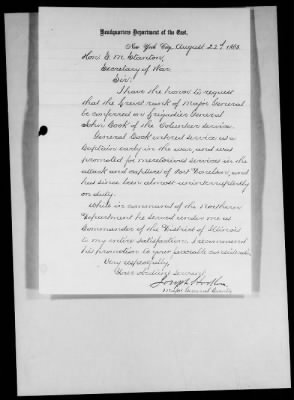 Headquarters Department of the East,
New York City, August 22d 1865.
Hon E. M. Stanton,
Secretary of War
Sir:
I have the honor to request
that the brevet rank of Major General
be conferred on Brigadier General
John Cook of the Volunteer service.
General Cook entered service as a
Captain early in the war, and was
promoted for meritorious services in the
attack and capture of Fort Donelson, and
has since been almost uninterruptedly
on duty.
While in command of the Northern
Department he served under me as
Commander of the District of Illinois
to my entire satisfaction. I recommend
his promotion to your favorable consideration.
Very respectfully,
Your obedient servant
Joseph Hooker
Major General Comdg